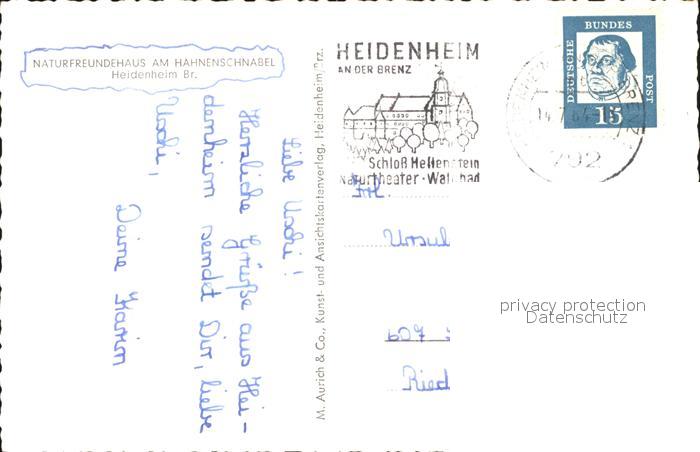 NATURFREUNDEHAUS AM HAHNENSCHNABEL
Heidenheim Br.
Liebe Uschi!
Herzliche Grüße aus Hei-
denheim sendet Dir, liebe
Uschi,
Deine Karin
M. Aurich & Co., Kunst- und Ansichtskartenverlag, Heidenheim/Brz.
HEIDENHEIM
AN DER BRENZ
Schloß Hellenstein
Naturtheater · Waldbad
DEUTSCHE
BUNDES
POST
15
792
Frl.
Ursul
607
Ried
privacy protection
Datenschutz